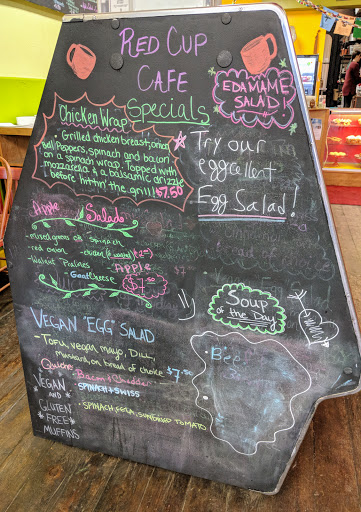 RED CUP
CAFE
Specials
EDAMAME
SALAD
Chicken Wrap
• Grilled chicken breast, onion
Bell Peppers, spinach and bacon
on a spinach wrap. Topped with
mozzarella & a balsamic drizzle
before hittin' the grill! $7.50
Try our
eggcellent
Egg Salad!
Apple Salad
- mixed greens or spinach
- red onion
- Walnut Pralines
Goat Cheese
Apple
$7
Soup
of the Day
VEGAN "EGG" SALAD
- TOFU, vegan mayo, Dill,
mustard, on bread of choice $7.50
Quiche Bacon & Cheddar
SPINACH & SWISS
• SPINACH, FETA, SUNDRIED TOMATO
VEGAN
AND
GLUTEN
*FREE*
MUFFINS